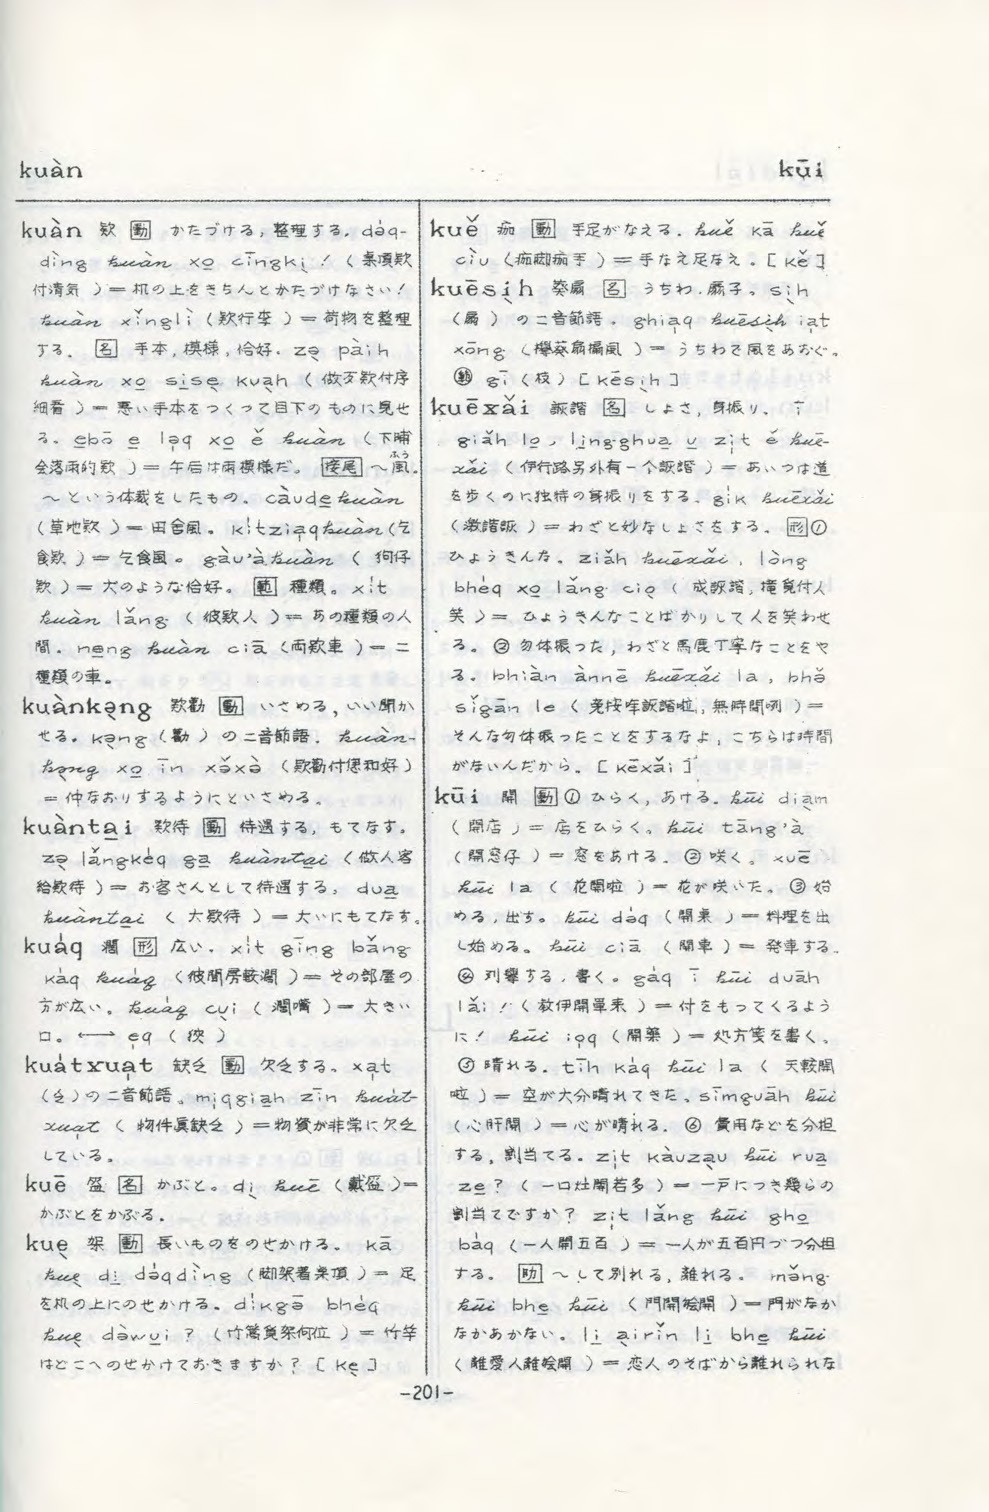 kuàn
kūi
kuàn 欵 動 かたづける,整理する. dəq-
dìng kuàn xo cīngkì! (桌頂欵
付清気 )= 机の上をきちんとかたづけなさい!
kuàn xǐnglì (欵行李 )= 荷物を整理
する. 名 手本,模様,恰好. zə pàih
kuàn xo sise kuah (做歹欵付序
細看 )= 悪い手本をつくって目下のものに見せ
る。 ebō e ləq xo ě kuàn (下晡
会落雨的欵 )= 午后は雨模様だ。 接尾 〜風.
〜という体裁をしたもの. càudekuàn
(草地欵 )= 田舎風. kitziaqkuàn (乞
食欵 )= 乞食風。 gàu'àkuàn ( 狗仔
欵 )= 犬のような恰好. 範 種類. xit
kuàn lǎng ( 彼欵人 )= あの種類の人
間. neng kuàn ciā (両欵車 )= 二
種類の車.
kuànkəng 欵勸 動 いさめる,いい聞か
せる. kəng (勸 ) の二音節語. kuàn-
kəng xo īn xəxə̀ (欵勸付𪜶和好)
= 仲なおりするようにといさめる.
kuàntai 欵待 動 待遇する,もてなす.
zə lǎngkéq ga kuàntai (做人客
給欵待 )= お客さんとして待遇する, dua
kuàntai ( 大欵待 )= 大いにもてなす.
kuáq 濶 形 広い. xit gīng bǎng
káq kuáq (彼間房較濶 )= その部屋の
方が広い. kuáq cui ( 濶嘴 )= 大きい
口. ⟷ eq ( 狹 )
kuátxuat 缺乏 動 欠乏する. xat
(乏)の二音節語. miqgiah zīn kuát-
xuat ( 物件真缺乏 )= 物資が非常に欠乏
している.
kuē 盔 名 かぶと. di kuē (戴盔 )=
かぶとをかぶる.
kue 架 動 長いものをのせかける. kā
kue di dəqdìng (脚架着桌頂 )= 足
を机の上にのせかける. dikgə̄ bhéq
kue dəwui ? (竹篙覓架何位 )= 竹竿
はどこへのせかけておきますか? [ ke ]
kuě 痂 動 手足がなえる. kuě kā kuě
cìu (痂脚痂手 )= 手なえ足なえ. [ kě ]
kuēsìh 葵扇 名 うちわ.扇子. sìh
(扇 ) の二音節語. ghiaq kuēsìh iat
xōng ( 葵扇 風 )= うちわで風をあおぐ.
範 gī (枝) [ kēsìh ]
kuēxǎi 詼諧 名 しょさ,身振り. ī
giǎh lo, ling-ghua u zit ě kuē-
xǎi (伊行路另外有一个詼諧 )= あいつは道
を歩くのに独特の身振りをする. gik kuēxǎi
(激諧詼 )= わざと妙なしょさをする. 形①
ひょうきんな. ziǎh kuēxǎi, lòng
bhéq xo lǎng ciə ( 成詼諧, 覓付人
笑 )= ひょうきんなことばかりして人を笑わせ
る. ② 勿体振った,わざと馬鹿丁寧なことをや
る. bhiàn ànnē kuēxǎi la, bhə̌
sǐgān le ( 免按咩詼諧啦,無時間咧 )=
そんな勿体振ったことをするなよ,こちらは時間
がないんだから. [ kēxǎi ]
kūi 開 動① ひらく,あける. kūi diam
(開店 )= 店をひらく. kūi tāng'à
(開窓仔 )= 窓をあける. ② 咲く. xuē
kūi la ( 花開啦 )= 花が咲いた. ③ 始
める,出す. kūi dəq (開桌 )= 料理を出
し始める. kūi ciā (開車 )= 発車する.
④ 列挙する,書く. gáq ī kūi duāh
lǎi! (教伊開單来 )= 付をもってくるよう
に! kūi ioq (開藥 )= 処方箋を書く.
⑤ 晴れる. tīh káq kūi la ( 天較開
啦 )= 空が大分晴れてきた. sīmguāh kūi
(心肝開 )= 心が晴れる. ⑥ 費用などを分担
する,割当てる. zit kàuzau kūi rua
ze ? ( 一口灶開若多 )= 一戸につき幾らの
割当てですか? zit lǎng kūi gho
báq (一人開五百 )= 一人が五百円づつ分担
する. 助 〜して別れる,離れる. mǎng
kūi bhe kūi (門開 開 )= 門がなか
なかあかない. li airǐn li bhe kūi
(離愛人離 開 )= 恋人のそばから離れられな
-201-